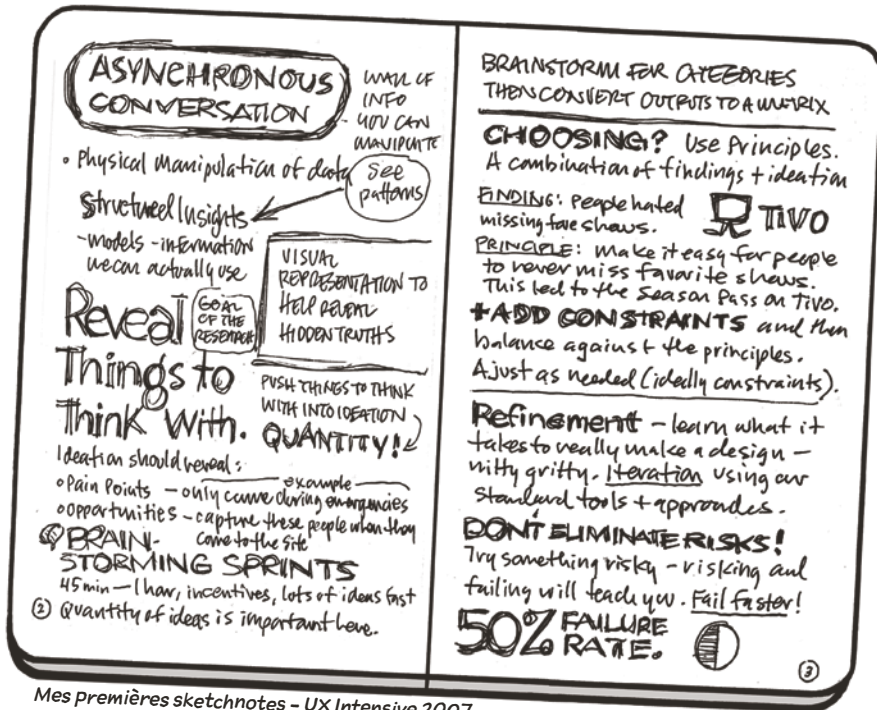 ASYNCHRONOUS
CONVERSATION
WALL OF
INFO
YOU CAN
MANIPULATE
• Physical manipulation of data
See
patterns
Structured Insights
- models - information
we can actually use
VISUAL
REPRESENTATION TO
HELP REVEAL
HIDDEN TRUTHS
Reveal
Things to
Think With.
GOAL
OF THE
RESEARCH
PUSH THINGS TO THINK
WITH INTO IDEATION
QUANTITY!
Ideation should reveal:
example
• Pain Points – only came during emergencies
• Opportunities – capture these people when they
come to the site
BRAIN-
STORMING SPRINTS
45 min – 1 hour, incentives, lots of ideas fast
Quantity of ideas is important here.
2
BRAINSTORM FOR CATEGORIES
THEN CONVERT OUTPUTS TO A MATRIX
CHOOSING? Use Principles.
A combination of findings + ideation
FINDING: People hated
missing fave shows.
TIVO
PRINCIPLE: Make it easy for people
to never miss favorite shows.
This led to the Season Pass on TiVo.
+ADD CONSTRAINTS and then
balance against the principles.
Ajust as needed (ideally constraints).
Refinement – learn what it
takes to really make a design –
nitty gritty. Iteration using our
standard tools + approaches.
DON'T ELIMINATE RISKS!
Try something risky – risking and
failing will teach you. Fail faster!
50% FAILURE
RATE.
3
Mes premières sketchnotes – UX Intensive 2007